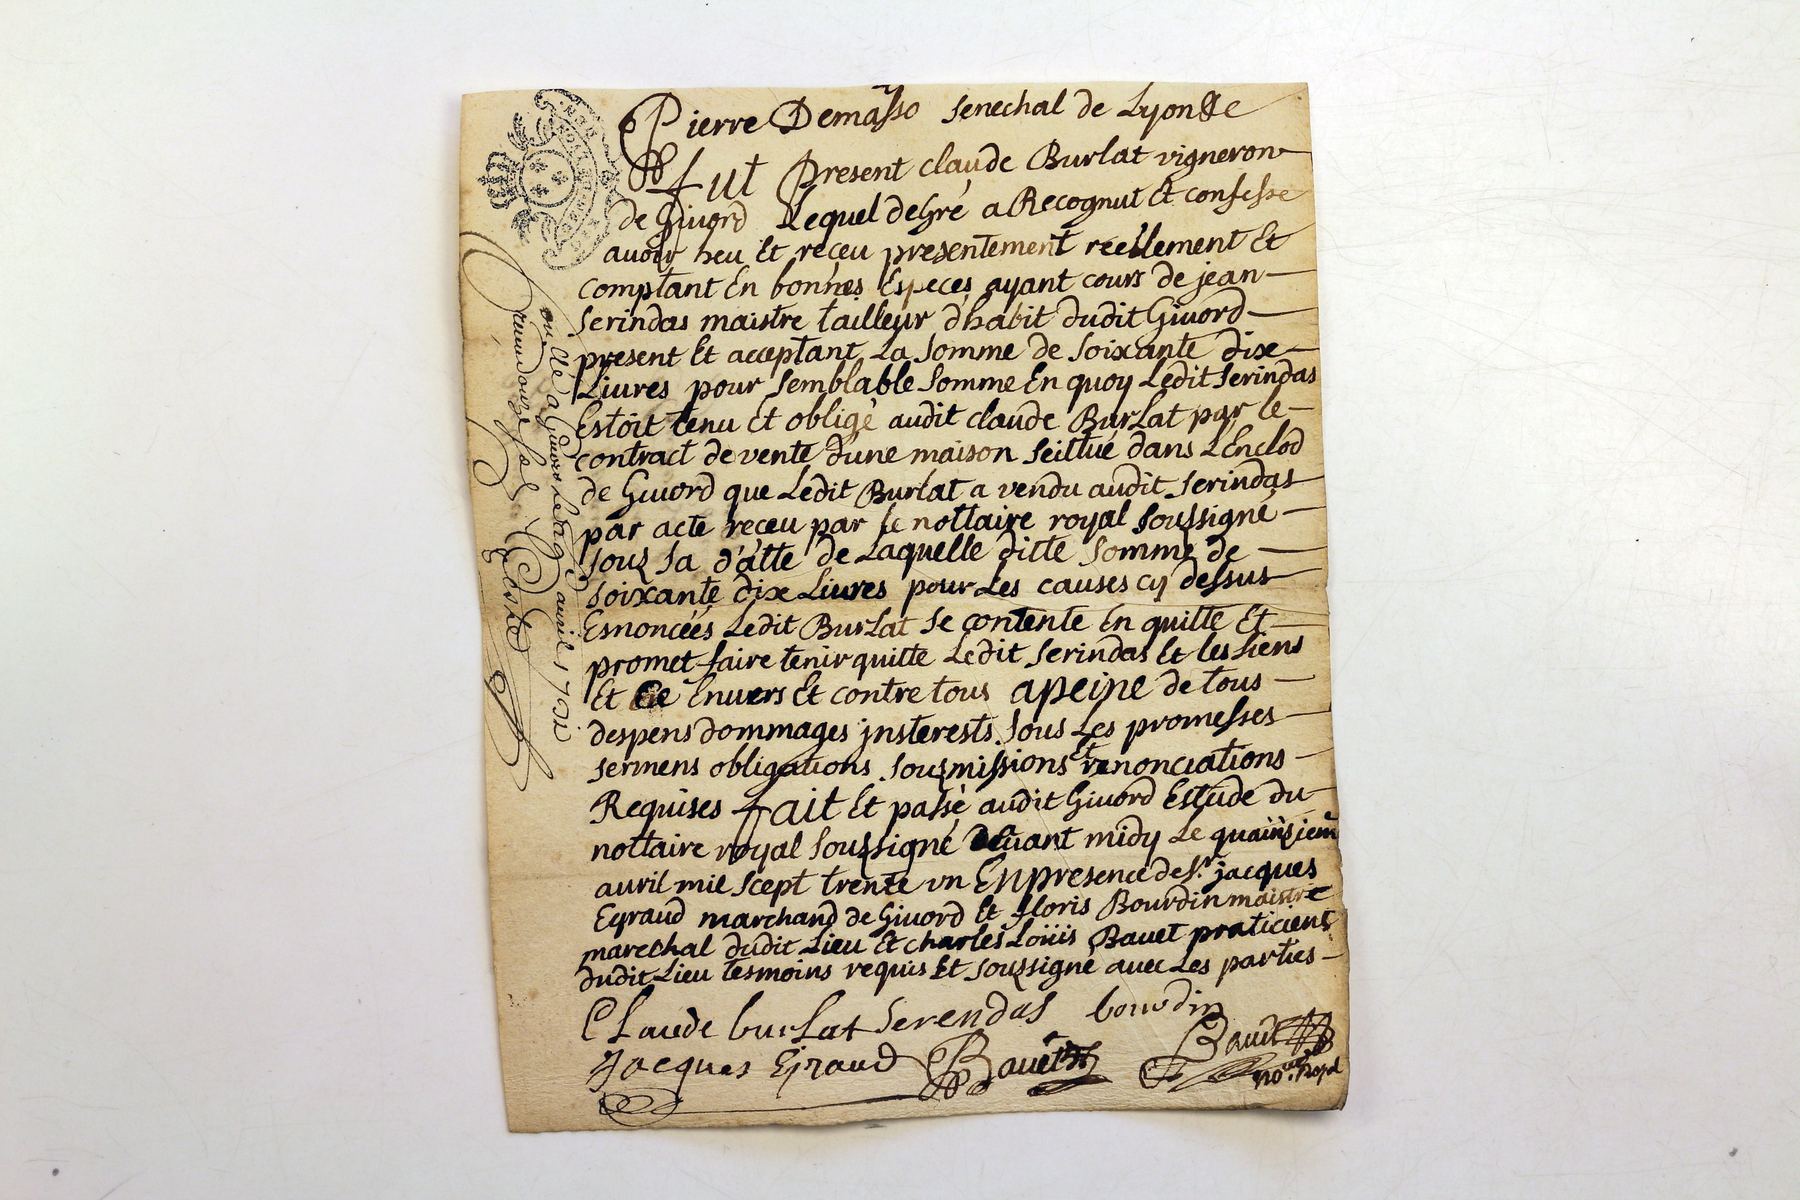 Pierre Demasso Senechal de Lyon &c
fut present claude Burlat vigneron
de Givord Lequel de gré a Recognut Et confesse
avoir heu Et receu presentement reellement Et
comptant En bonnes Especes ayant cours de jean
Serindas maistre tailleur d'habit dudit Givord
present Et acceptant La Somme de Soixante dixe
Livres pour Semblable Somme En quoy Ledit Serindas
Estoit tenu Et obligé audit claude Burlat par le
contract de vente d'une maison Seittué dans L'Enclod
de Givord que Ledit Burlat a vendu audit Serindas
par acte receu par le nottaire royal Soussigné
Souz Sa datte de Laquelle ditte Somme de
Soixante dixe Livres pour Les causes cy dessus
Esnoncées Ledit Burlat Se contente En quitte Et
promet faire tenir quitte Ledit Serindas Et les Siens
Et Ce Envers Et contre tous a peine de tous
despens dommages jnsterests Sous Les promesses
Sermens obligations Sousmissions Et renonciations
Requises fait Et passé audit Givord Estude du
nottaire royal Soussigné Devant midy Le
avril mil Scept trente un En presence de Sr. jacques
Eyraud marchand de Givord Et floris Bourdin maistre
marechal dudit Lieu Et charles Loüis Bavet praticient
dudit Lieu tesmoins requis Et Soussigné avec Les parties
Claude burlat Serendas bourdin
Jacques Eyraud Bavet Bavet
no.re Royal
a Givors Le avril 1731
Receu douze sols